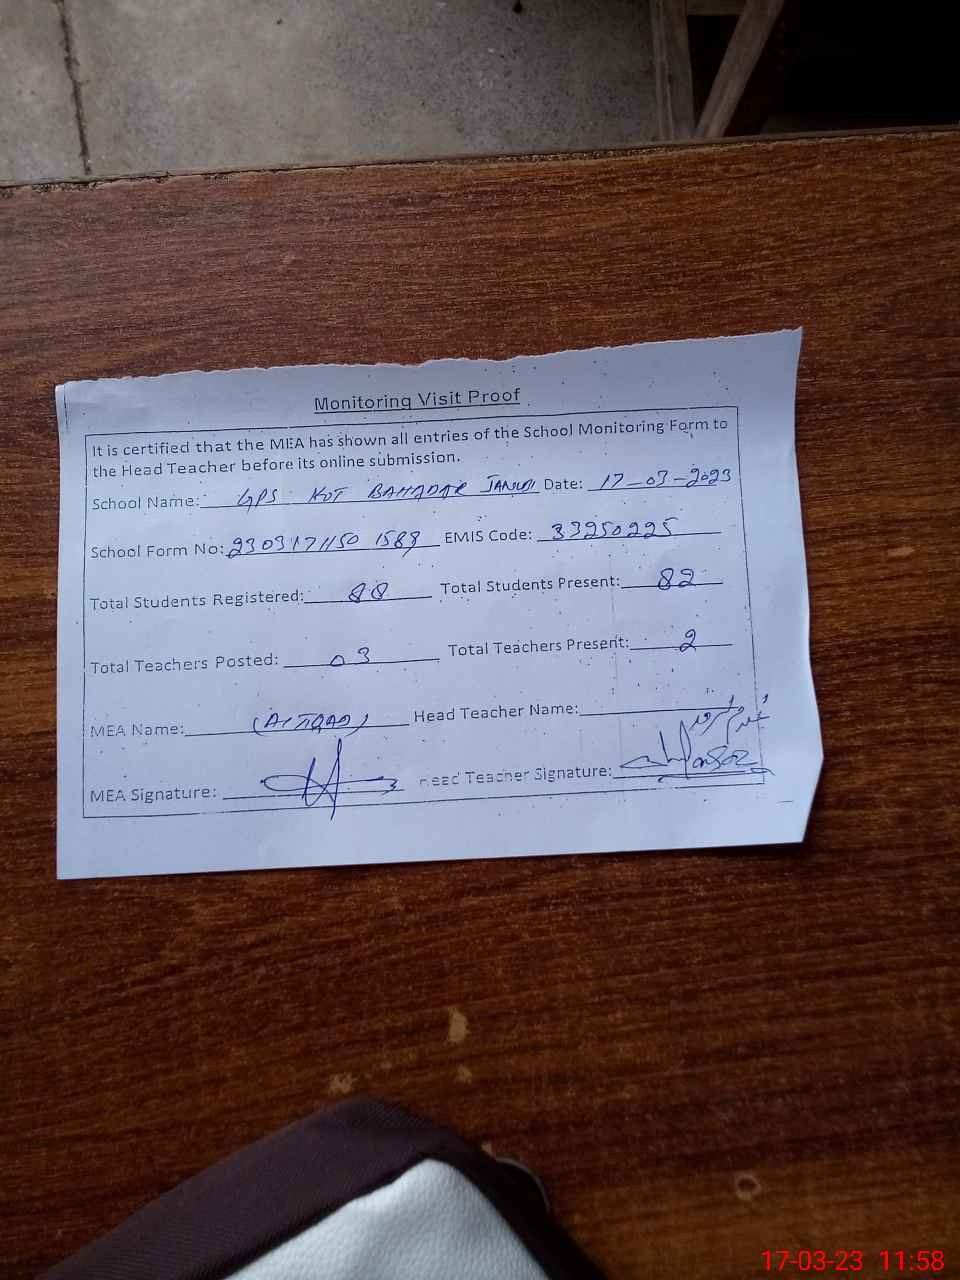 Monitoring Visit Proof
It is certified that the MEA has shown all entries of the School Monitoring Form to
the Head Teacher before its online submission.
School Name: GPS KOT BAHADAR Date: 17-03-2023
School Form No: 2303171150 1588 EMIS Code: 33250225
Total Students Registered: 88 Total Students Present: 82
Total Teachers Posted: 03 Total Teachers Present: 2
MEA Name: Head Teacher Name:
MEA Signature: Head Teacher Signature:
17-03-23 11:58